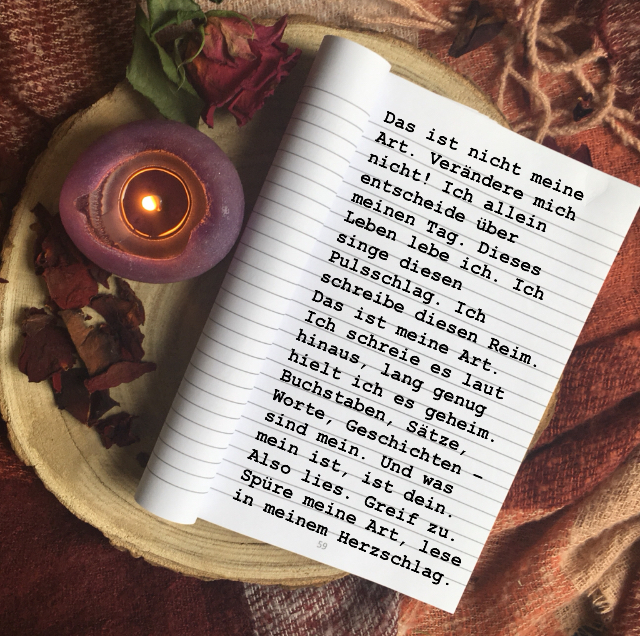 Das ist nicht meine
Art. Verändere mich
nicht! Ich allein
entscheide über
meinen Tag. Dieses
Leben lebe ich. Ich
singe diesen
Pulsschlag. Ich
schreibe diesen Reim.
Das ist meine Art.
Ich schreie es laut
hinaus, lang genug
hielt ich es geheim.
Buchstaben, Sätze,
Worte, Geschichten –
sind mein. Und was
mein ist, ist dein.
Also lies. Greif zu.
Spüre meine Art, lese
in meinem Herzschlag.
59